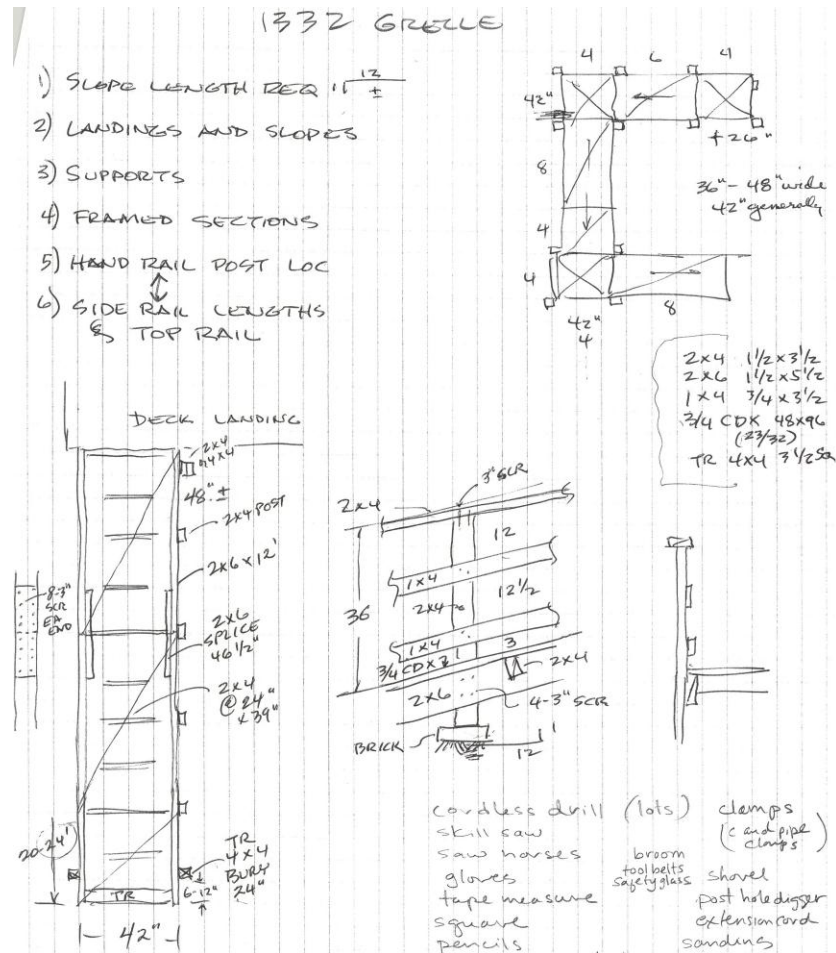 1332 GRELLE
1) SLOPE LENGTH REQ 1 12 ±
2) LANDINGS AND SLOPES
3) SUPPORTS
4) FRAMED SECTIONS
5) HAND RAIL POST LOC
6) SIDE RAIL LENGTHS
& TOP RAIL
4 6 4
42"
+26"
8
36"- 48" wide
42" generally
4
4
42"
4
8
2x4 1 1/2 x 3 1/2
2x6 1 1/2 x 5 1/2
1x4 3/4 x 3 1/2
3/4 CDX 48x96
(23/32)
TR 4x4 3 1/2 SQ
DECK LANDING
2x4
4x4
48" ±
2x4 POST
2x6x12'
8-3"
SCR
EA
END
2x6
SPLICE
46 1/2"
2x4
@ 24"
x 39"
20-24'
TR
4x4
BURY
24"
6-12"
TR
42"
3" SCR
2x4
12
1x4
12 1/2
36
2x4
1x4
3
3/4 CDX
2x4
2x6
4-3" SCR
BRICK
1
12
cordless drill (lots)
skill saw
saw horses
gloves
tape measure
square
pencils
broom
tool belts
safety glass
clamps
(c and pipe
clamps)
shovel
post hole digger
extension cord
sanding